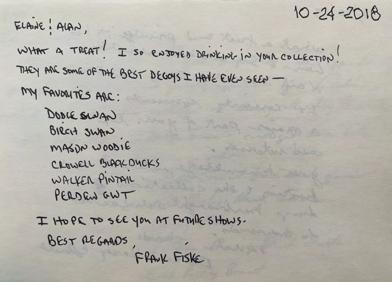 10-24-2018
ELAINE & ALAN,
WHAT A TREAT! I SO ENJOYED DRINKING IN YOUR COLLECTION!
THEY ARE SOME OF THE BEST DECOYS I HAVE EVEN SEEN —
MY FAVORITES ARE:
DODGE SWAN
BIRCH SWAN
MASON WOODIE
CROWELL BLACK DUCKS
WALKER PINTAIL
PERDEW GWT
I HOPE TO SEE YOU AT FUTURE SHOWS.
BEST REGARDS,
FRANK FISKE